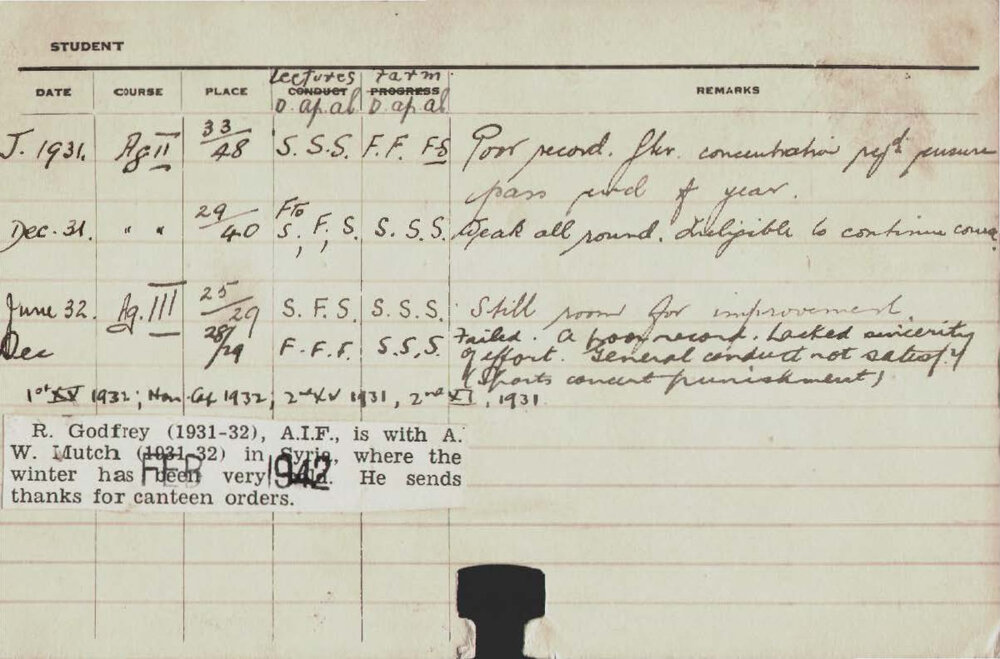 STUDENT
DATE COURSE PLACE Lectures CONDUCT Farm PROGRESS REMARKS
D. ap. al D. ap. al
J. 1931. Ag II 33/48 S. S. S. F. F. FS Poor record. Gtr. concentration ensure
pass end of year.
Dec. 31. " " 29/40 F to S, F, S. S. S. S. Weak all round. Ineligible to continue course
June 32. Ag. III 25/29 S. F. S. S. S. S. Still room for improvement.
Dec 28/29 F. F. F. S. S. S. Failed. A poor record. Lacked sincerity
of effort. General conduct not satisfy
(Sports concert punishment)
1st XV 1932; Hon. 1932, 2nd XV 1931, 2nd XI, 1931
R. Godfrey (1931-32), A.I.F., is with A.
W. Mutch (1931-32) in Syria, where the
winter has been very cold. He sends
FEB 1942
thanks for canteen orders.